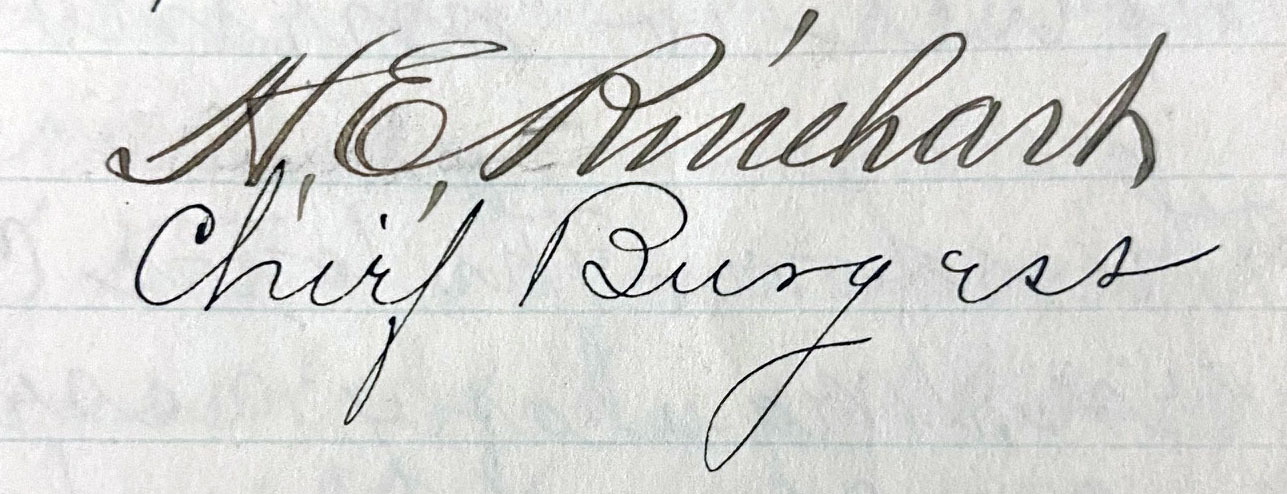 H. E. Rinehart
Chief Burgess